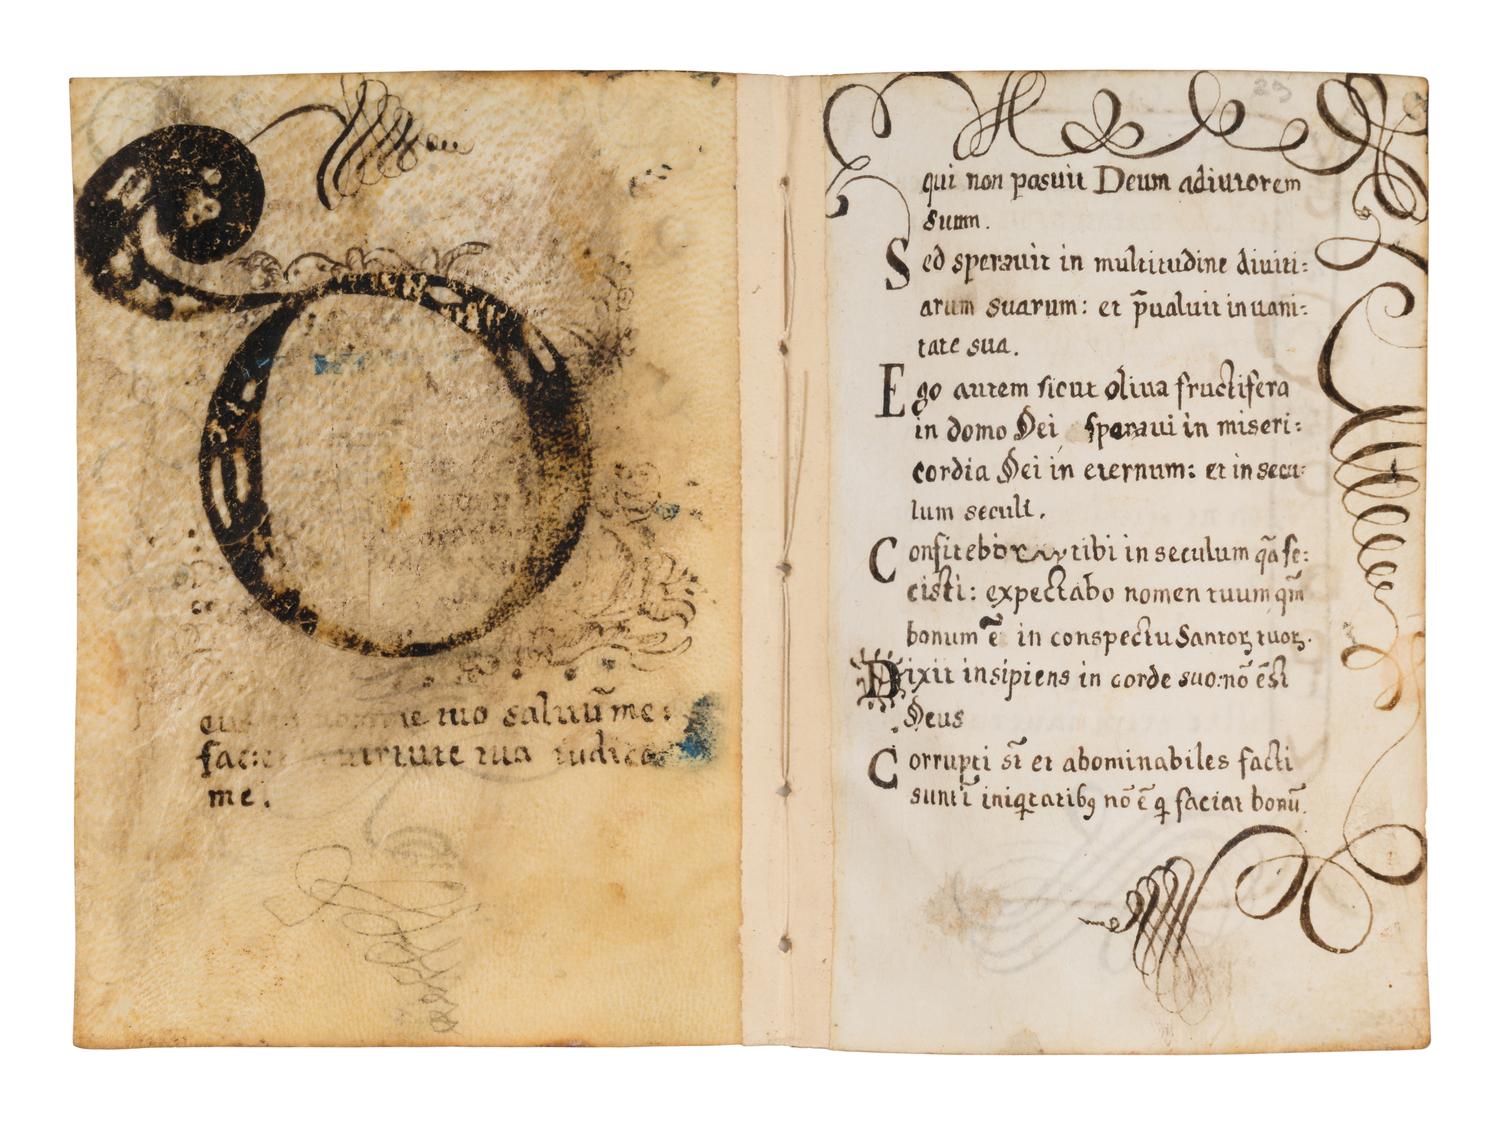 nomine tuo saluũ me:
facie uirtute tua iudica
me.
23
qui non posuit Deum adiutorem
suum.
Sed sperauit in multitudine diuiti:
arum suarum: et p̃ualuit in uani:
tate sua.
Ego autem sicut oliua fructifera
in domo Dei speraui in miseri:
cordia Dei in eternum: et in secu:
lum seculi.
Confitebor tibi in seculum q̃a fe:
cisti: expectabo nomen tuum qm̃
bonum ẽ in conspectu Santoꝝ tuoꝝ.
Dixit insipiens in corde suo: nõ ẽst
Deus
Corrupti st̃ et abominabiles facti
sunt ĩ iniq̃tatibꝯ nõ ẽ q̃ faciat bonũ.